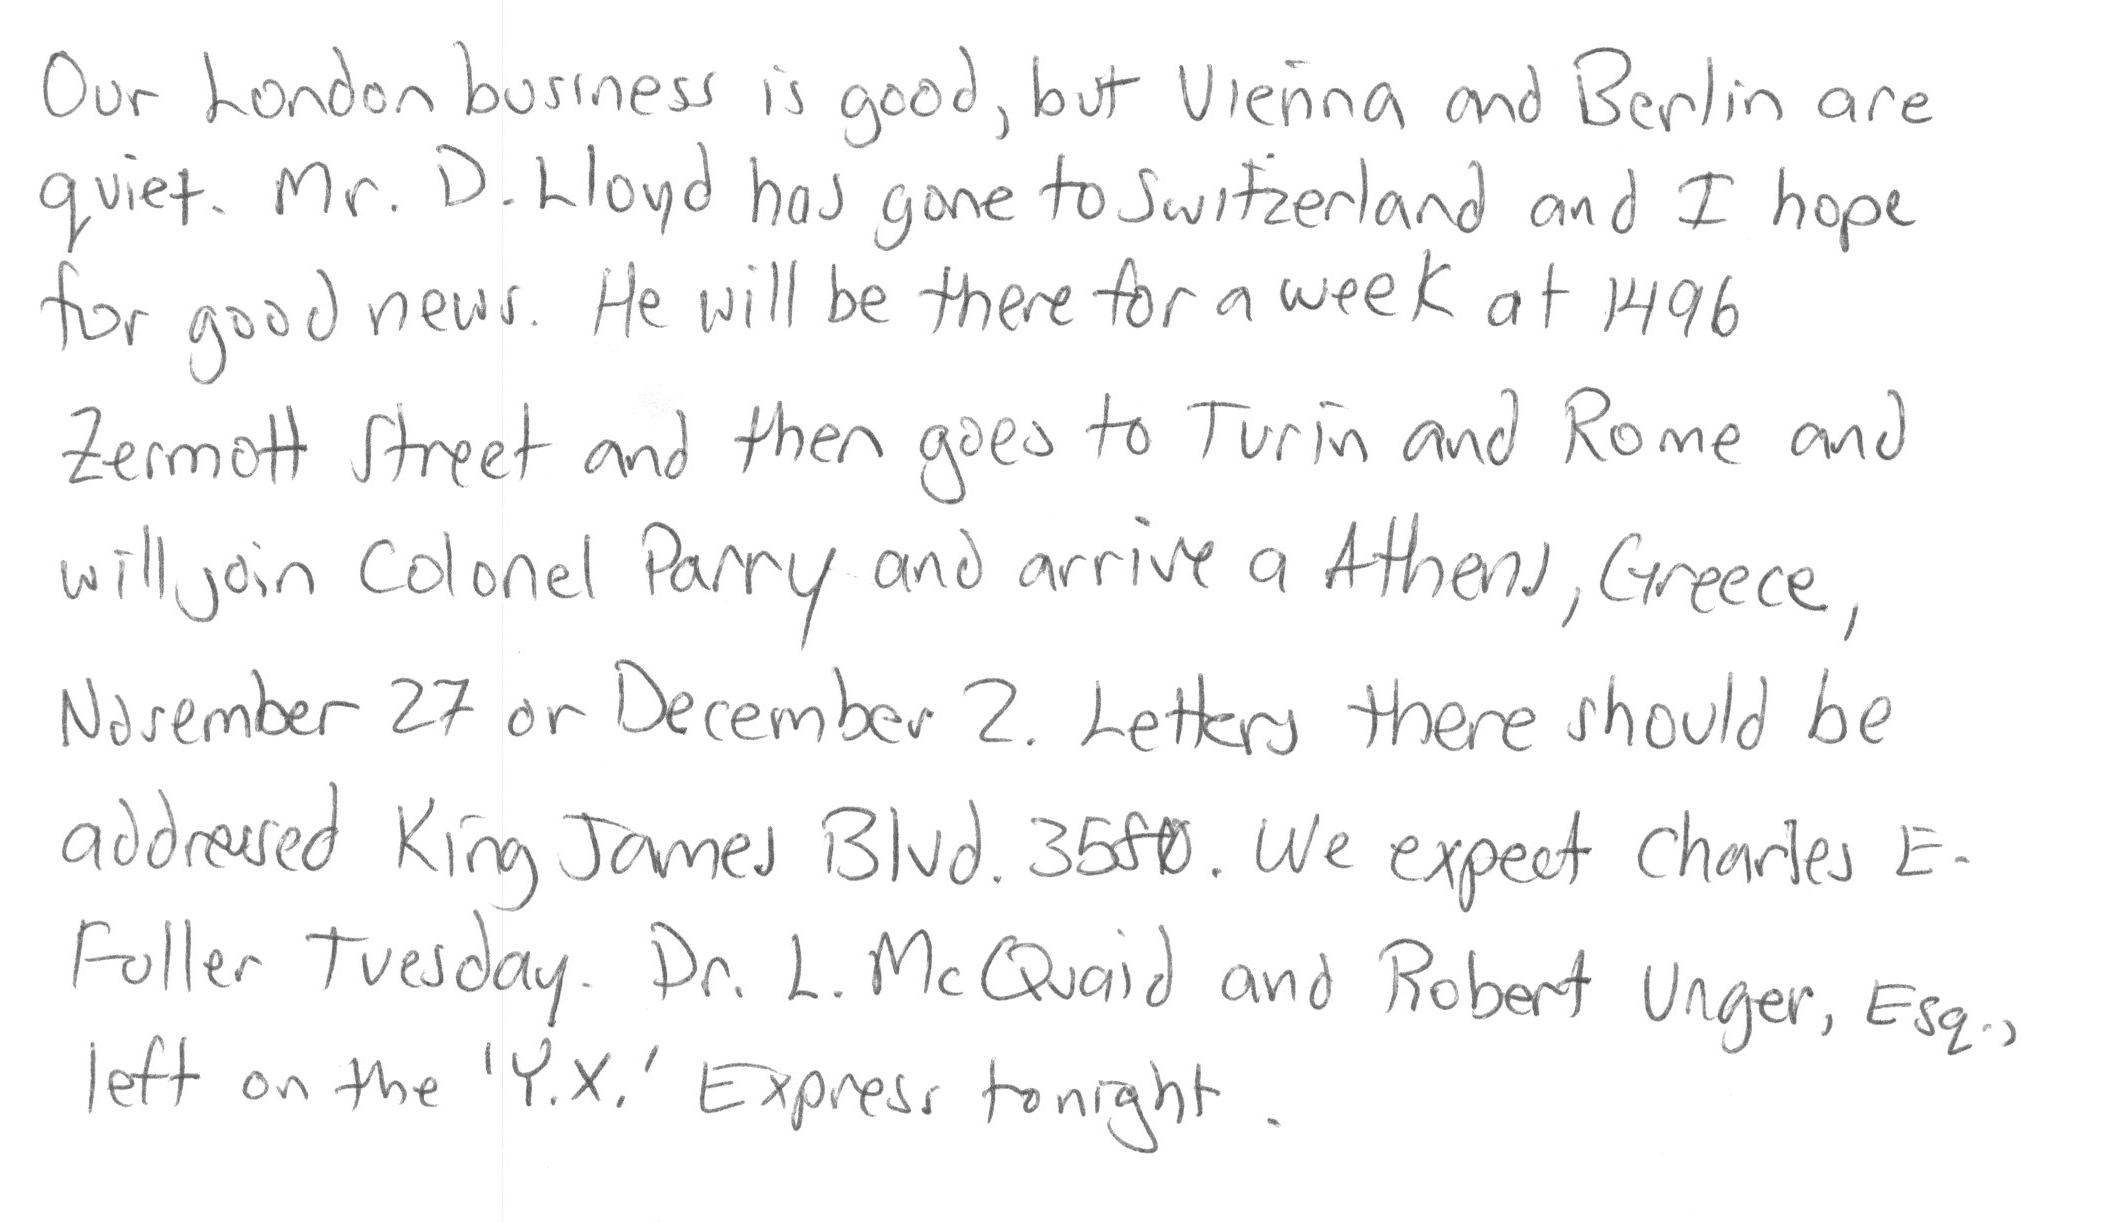 Our London business is good, but Vienna and Berlin are
quiet. Mr. D. Lloyd has gone to Switzerland and I hope
for good news. He will be there for a week at 1496
Zermott Street and then goes to Turin and Rome and
will join Colonel Parry and arrive a Athens, Greece,
November 27 or December 2. Letters there should be
addressed King James Blvd. 3580. We expect Charles E.
Fuller Tuesday. Dr. L. McQuaid and Robert Unger, Esq.,
left on the 'Y.X.' Express tonight.